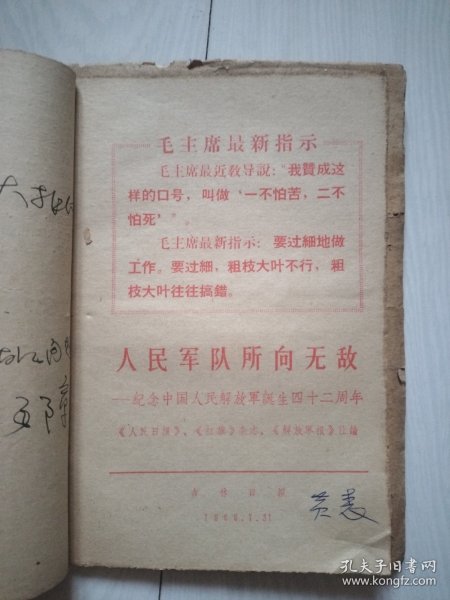 毛主席最新指示
毛主席最近教导説：“我贊成这
样的口号，叫做‘一不怕苦，二不
怕死’”。
毛主席最新指示：要过細地做
工作。要过細，粗枝大叶不行，粗
枝大叶往往搞錯。
人民军队所向无敌
——纪念中国人民解放軍誕生四十二周年
《人民日报》、《红旗》杂志、《解放军报》社論
吉林日报
孔夫子旧书网
www.kongfz.com